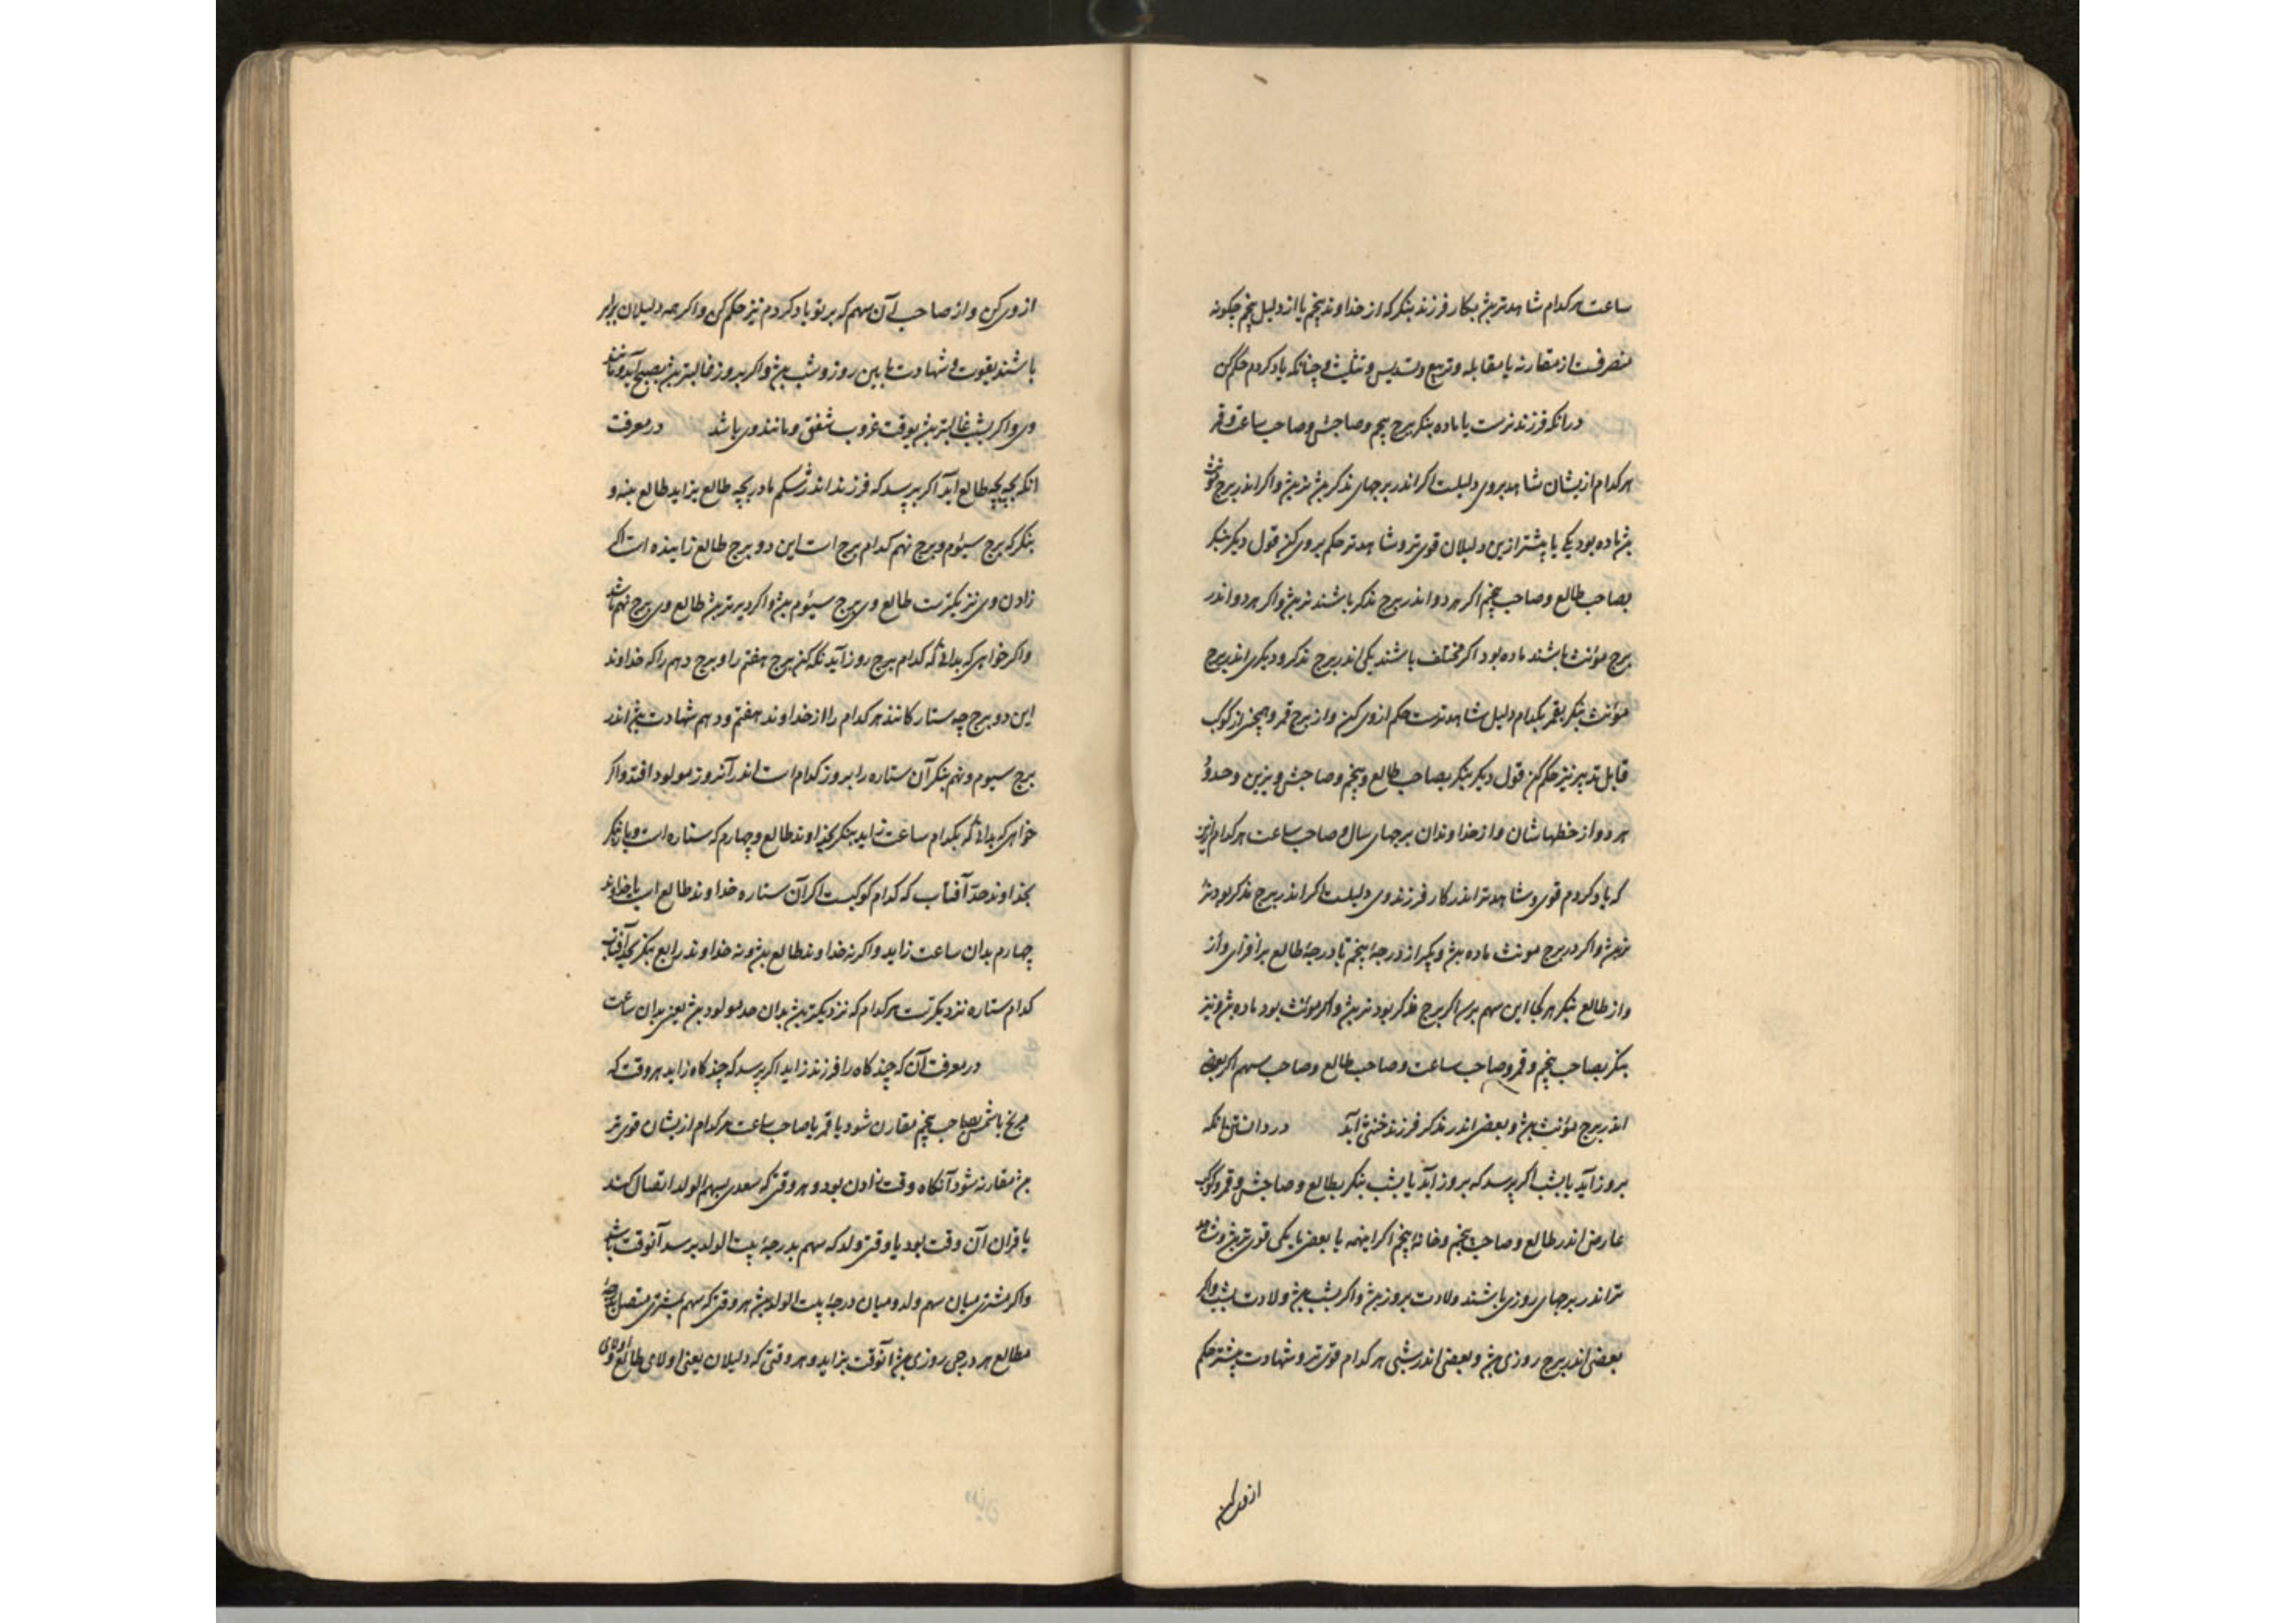 ساعت هر کدام شاهدتر بش بکار فرزند بنکر که از خداوند پنجم یا از دلیل پنجم چکونه
منصرفست از مقارنه یا مقابله و تربیع و تسدیس و تثلیث و چنانکه یاد کردم حکم کن
در انکه فرزند نرست یا ماده بنکر برج پنجم و صاحبش و صاحب ساعت و قمر
هر کدام ازیشان شاهد بروی دلیلست اکر اندر برجهای مذکر بش نر بش و اکر اندر برج مونث
بش ماده بود یکی یا پیشتر ازین دلیلان قوی تر و شاهدتر حکم بروی کن قول دیکر بنکر
بصاحب طالع و صاحب پنجم اکر هر دو اندر برج مذکر باشند نر بش و اکر هر دو اندر
برج مؤنث باشند ماده بود اکر مختلف باشند یکی اندر برج مذکر و دیکری اندر برج
مؤنث بنکر بقمر بکدام دلیل شاهدترست حکم ازوی کن و از برج قمر و همچنین از کوکب
قابل تدبیر نیز حکم کن قول دیکر بنکر بصاحب طالع و پنجم و صاحبش و بزین وحدو
هر دو از خطهاشان و از خداوندان برجهای سال و صاحب ساعت هر کدام ازین
که یاد کردم قوی و شاهدتر اندر کار فرزند وی دلیلست اکر اندر برج مذکر بود نر
نر بش و اکر در برج مونث ماده بش و بکیر از درجهٔ پنجم تا درجهٔ طالع برافزای و از
و از طالع بنکر هر کجا این سهم برسد اکر برج مذکر بود نر بش و اکر مؤنث بود ماده بش و نیز
بنکر بصاحب پنجم و قمر و صاحب ساعت و صاحب طالع و صاحب سهم اکر بعضی
اندر برج مؤنث بش و بعضی اندر مذکر فرزند خنثی آید در دانستن بانکه
بروز آید یا بشب اکر پرسد که بروز آید یا بشب بنکر بطالع و صاحبش و قمر و کوکب
عارض اندر طالع و صاحب پنجم و خانهٔ پنجم اکر اینهمه یا بعضی یا یکی قوی تر بش و شاهد
تر اندر برجهای روزی باشند ولادت بروز بش و اکر بشب بش ولادت بشب و اکر
بعضی اندر برج روزی بش و بعضی اندر شبی هر کدام قوی تر و شهادت بیشتر حکم
ازوی کن
ازوی کن و از صاحب آن سهم که بر تو یاد کردم نیز حکم کن و اکر همه دلیلان برابر
باشند بقوت و شهادت مابین روز و شب بش و اکر بروز غالبتر بش بصبح آید و مانند
وی و اکر بشب غالبتر بش بوقت غروب شفق و مانند وی باشد در معرفت
انکه بچه بچه طالع آید اکر پرسد که فرزند اندر شکم مادر بچه طالع بزاید طالع بنه و
بنکر که برج سیوم و برج نهم کدام برج است این دو برج طالع زاینده است اکر
زادن وی نزدیکترست طالع وی برج سیوم بش و اکر دیرتر بش طالع وی برج نهم باشد
و اکر خواهی که بدانی که کدام برج روز آید نکه کن برج هفتم را و برج دهم را که خداوند
این دو برج چه ستارکانند هر کدام را از خداوند هفتم و دهم شهادت بش اندر
برج سیوم و نهم بنکر آن ستاره را بروز کدام است اندر آنروز مولود افتد و اکر
خواهی که بدانی که بکدام ساعت زاید بنکر بخداوند طالع و چهارم که ستاره است و باز نکر
بخداوند حد آفتاب که کدام کوکبست اکر آن ستاره خداوند طالع است یا خداوند
چهارم بدان ساعت زاید و اکر نه خداوند طالع بش و نه خداوند رابع بنکر بحد آفتاب
کدام ستاره نزدیکترست هر کدام که نزدیکتر بش بدان حد مولود بش یعنی بدان ساعت
در معرفت آن که چند کاه را فرزند زاید اکر پرسد که چند کاه زاید هر وقت که
مریخ یا شمس بصاحب پنجم مقارن شود یا قمر یا صاحب ساعت هر کدام ازیشان قوی تر
بش مقارنه شود آنکاه وقت زادن بود و هر وقتی که سعدی بسهم الولد اتصال کند
یا قران آن وقت بود یا وقتی ولد که سهم بدرجهٔ بیت الولد برسد آنوقت باشد
و اکر مشتری میان سهم ولد و میان درجهٔ بیت الولد بش هر وقتی که سهم بمشتری متصل
مطالع هر درجی روزی بش آنوقت بزاید و هر وقتی که دلیلان یعنی اولای طالع و اولای